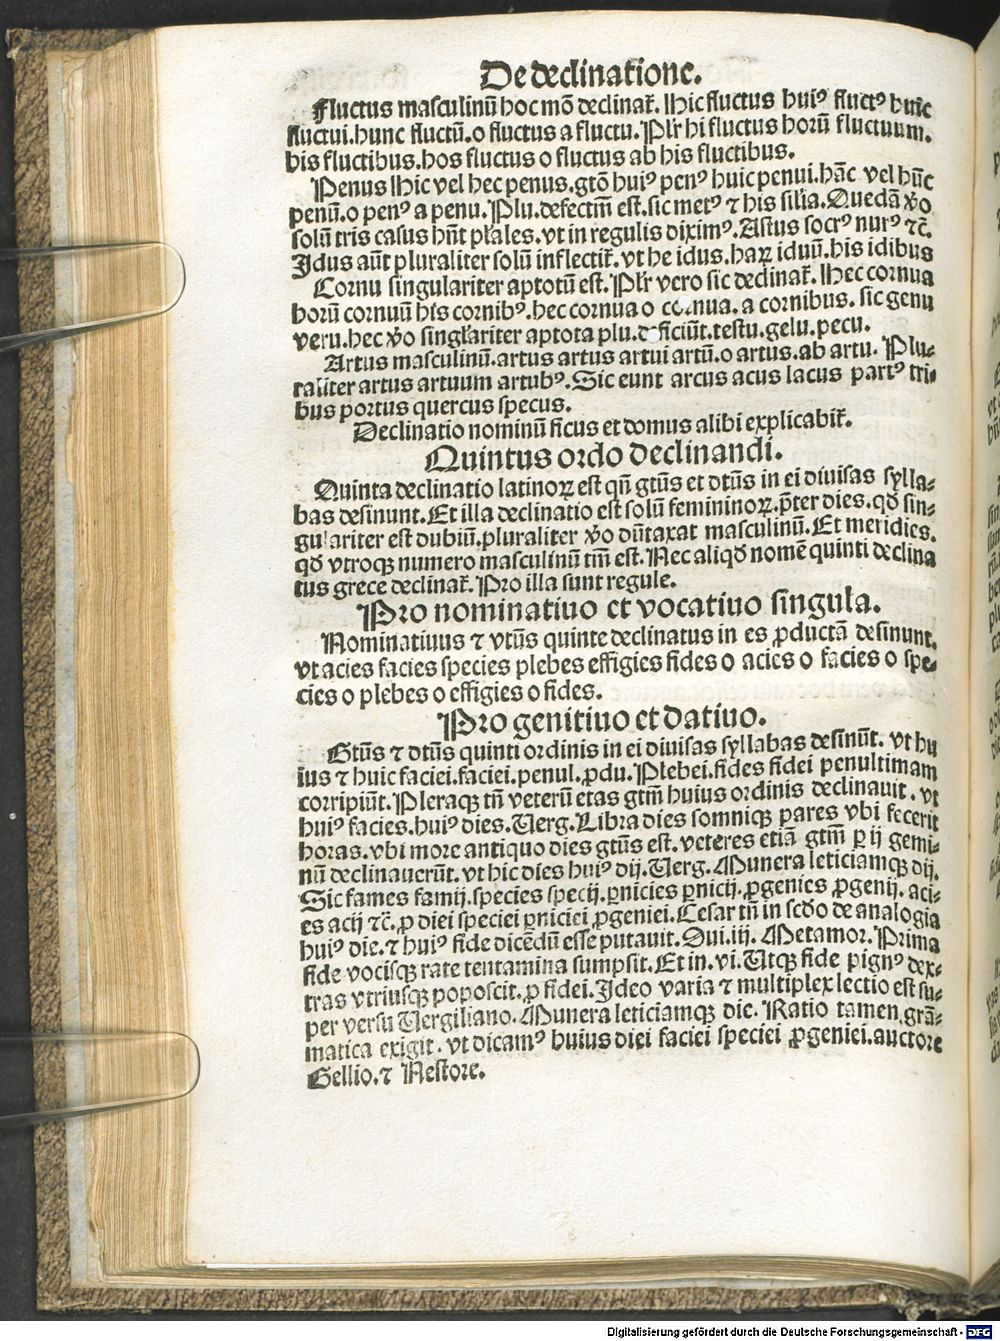 De declinatione.
Fluctus masculinū hoc mō declinat̄. Hic fluctus huiꝰ fluctꝰ huic
fluctui. hunc fluctū. o fluctus a fluctu. Plr̄ hi fluctus horū fluctuum.
his fluctibus. hos fluctus o fluctus ab his fluctibus.
Penus Hic vel hec penus. gtō huiꝰ penꝰ huic penui. hāc vel hūc
penū. o penꝰ a penu. Plu. defectm̄ est. sic metꝰ ⁊ his silia. Quedā ꝟo
solū tris casus hn̄t plales. vt in regulis diximꝰ. Astus socrꝰ nurꝰ ⁊c̄.
Idus aūt pluraliter solū inflectit̄. vt he idus. haꝝ iduū. his idibus
Cornu singulariter aptotū est. Plr̄ vero sic declinat̄. Hec cornua
horū cornuū his cornibꝰ. hec cornua o cornua. a cornibus. sic genu
veru. hec ꝟo singlariter aptota plu. deficiūt. testu. gelu. pecu.
Artus masculinū. artus artus artui artū. o artus. ab artu. Plu-
raliter artus artuum artubꝰ. Sic eunt arcus acus lacus partꝰ tri-
bus portus quercus specus.
Declinatio nominū ficus et domus alibi explicabit̄.
Quintus ordo declinandi.
Quinta declinatio latinoꝝ est qn̄ gtūs et dtūs in ei diuisas sylla-
bas desinunt. Et illa declinatio est solū femininoꝝ. p̄ter dies. qd̄ sin-
gulariter est dubiū. pluraliter ꝟo dūtaxat masculinū. Et meridies.
qd̄ vtroqꝫ numero masculinū tm̄ est. Nec aliqd̄ nomē quinti declina
tus grece declinat̄. Pro illa sunt regule.
Pro nominatiuo et vocatiuo singula.
Nominatiuus ⁊ vtūs quinte declinatus in es ꝓductā desinunt.
vt acies facies species plebes effigies fides o acies o facies o spe-
cies o plebes o effigies o fides.
Pro genitiuo et datiuo.
Gtūs ⁊ dtūs quinti ordinis in ei diuisas syllabas desinūt. vt hu
ius ⁊ huic faciei. faciei. penul. ꝓdu. Plebei. fides fidei penultimam
corripiūt. Pleraqꝫ tn̄ veterū etas gtm̄ huius ordinis declinauit. vt
huiꝰ facies. huiꝰ dies. Verg. Libra dies somniqꝫ pares vbi fecerit
horas. vbi more antiquo dies gtūs est. veteres etiā gtm̄ ꝑ ij gemi-
nū declinauerūt. vt hic dies huiꝰ dij. Verg. Munera leticiamqꝫ dij.
Sic fames famij. species specij. ꝑnicies ꝑnicij. ꝓgenies ꝓgenij. aci-
es acij ⁊c̄. ꝓ diei speciei ꝑniciei ꝓgeniei. Cesar tn̄ in scd̄o de analogia
huiꝰ die. ⁊ huiꝰ fide dicēdū esse putauit. Oui. iij. Metamor. Prima
fide vocisqꝫ rate tentamina sumpsit. Et in. vi. Vtqꝫ fide pignꝰ dex-
tras vtriusqꝫ poposcit. ꝓ fidei. Ideo varia ⁊ multiplex lectio est su-
per versu Vergiliano. Munera leticiamqꝫ die. Ratio tamen grā-
matica exigit. vt dicamꝰ huius diei faciei speciei ꝓgeniei. auctore
Gellio. ⁊ Nestore.
Digitalisierung gefördert durch die Deutsche Forschungsgemeinschaft - DFG